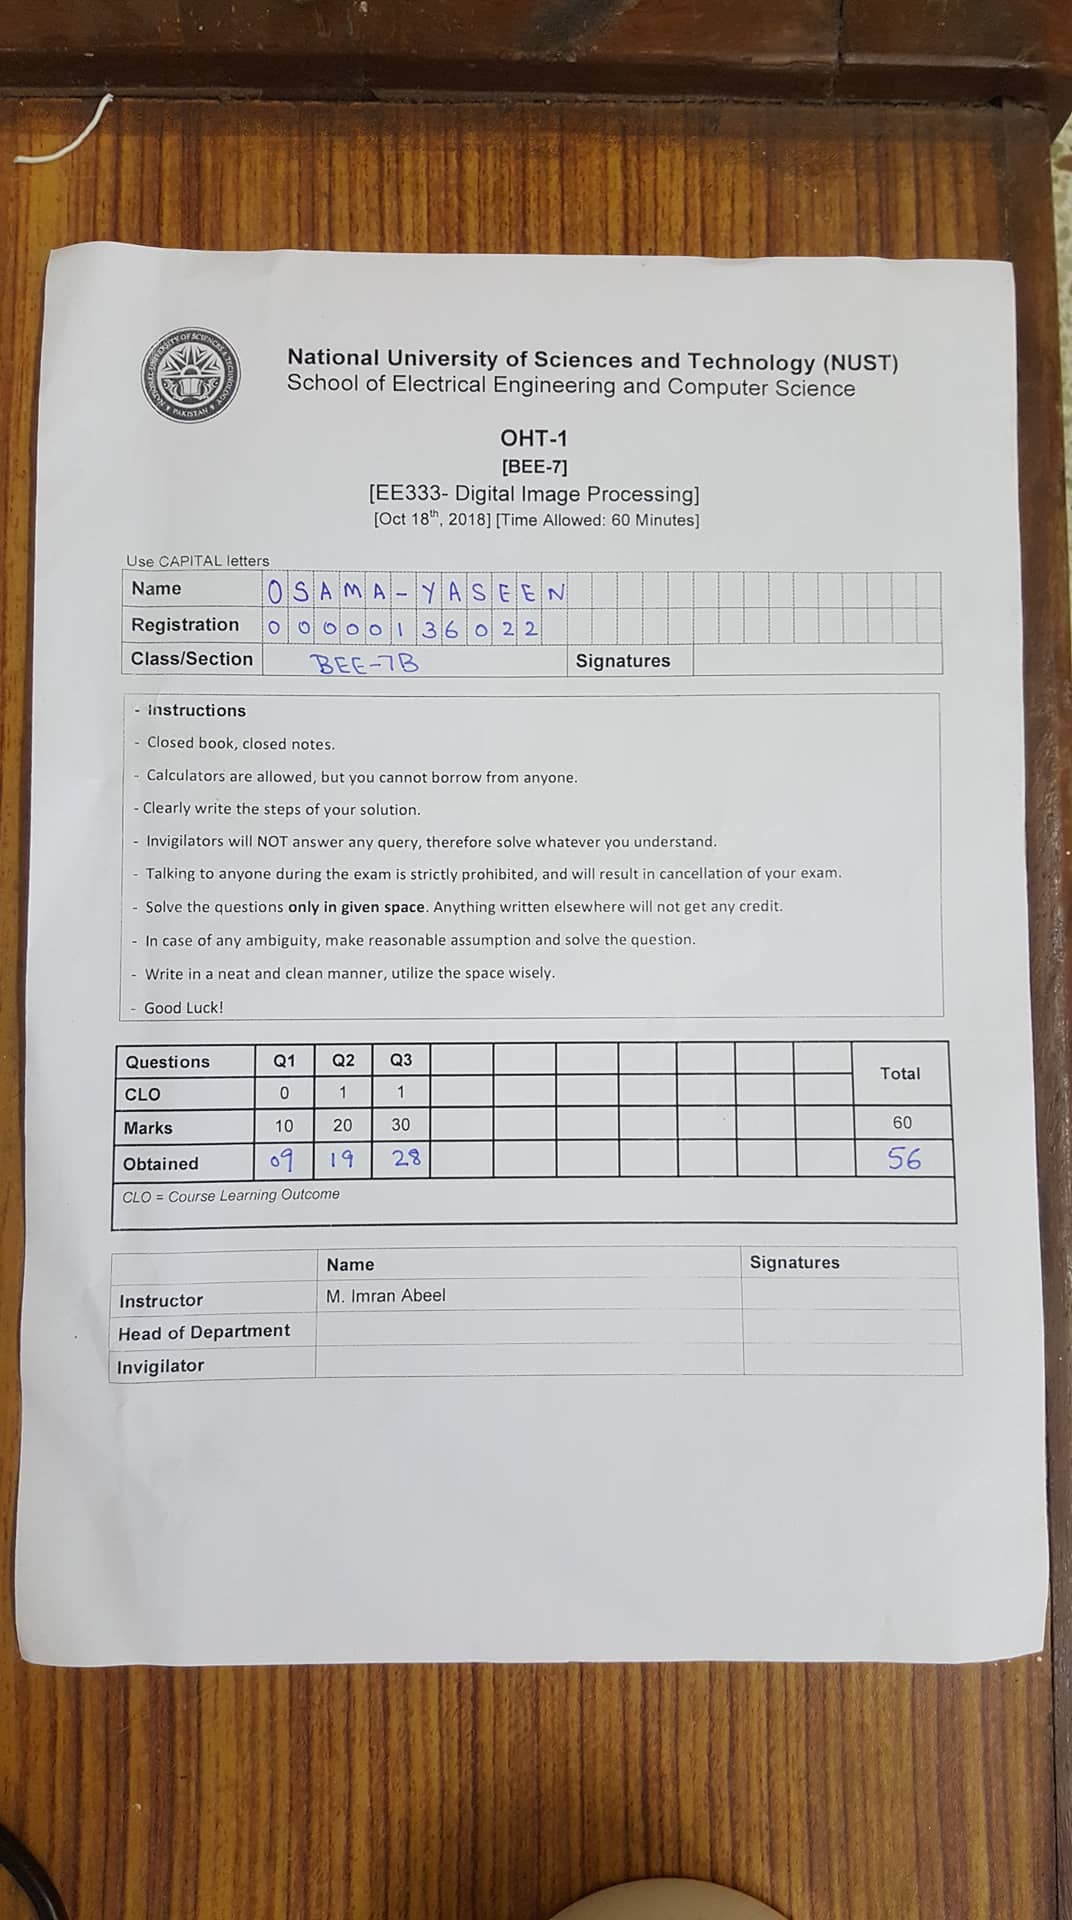 NATIONAL UNIVERSITY OF SCIENCES & TECHNOLOGY
PAKISTAN
National University of Sciences and Technology (NUST)
School of Electrical Engineering and Computer Science
OHT-1
[BEE-7]
[EE333- Digital Image Processing]
[Oct 18th, 2018] [Time Allowed: 60 Minutes]
Use CAPITAL letters
Name OSAMA-YASEEN
Registration 00000136022
Class/Section BEE-7B Signatures
- Instructions
- Closed book, closed notes.
- Calculators are allowed, but you cannot borrow from anyone.
- Clearly write the steps of your solution.
- Invigilators will NOT answer any query, therefore solve whatever you understand.
- Talking to anyone during the exam is strictly prohibited, and will result in cancellation of your exam.
- Solve the questions only in given space. Anything written elsewhere will not get any credit.
- In case of any ambiguity, make reasonable assumption and solve the question.
- Write in a neat and clean manner, utilize the space wisely.
- Good Luck!
Questions Q1 Q2 Q3 Total
CLO 0 1 1
Marks 10 20 30 60
Obtained 09 19 28 56
CLO = Course Learning Outcome
Name Signatures
Instructor M. Imran Abeel
Head of Department
Invigilator